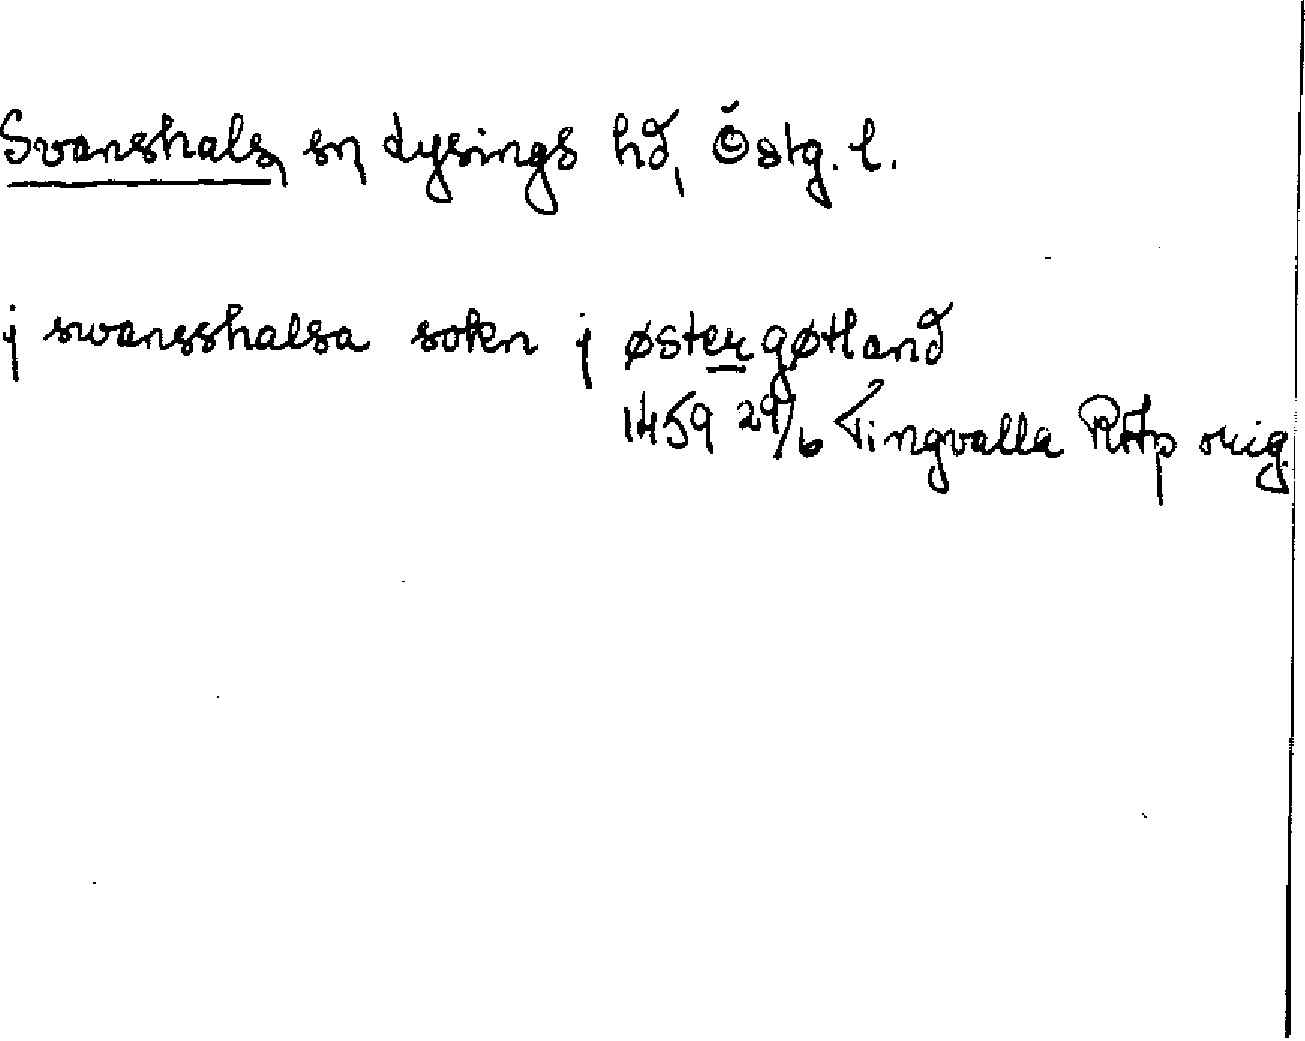 Svanshals, sn, Lysings hd, Östg. l.
j swansshalsa sokn j østergøtland
1459 29/6 Tingvalla RAp orig.